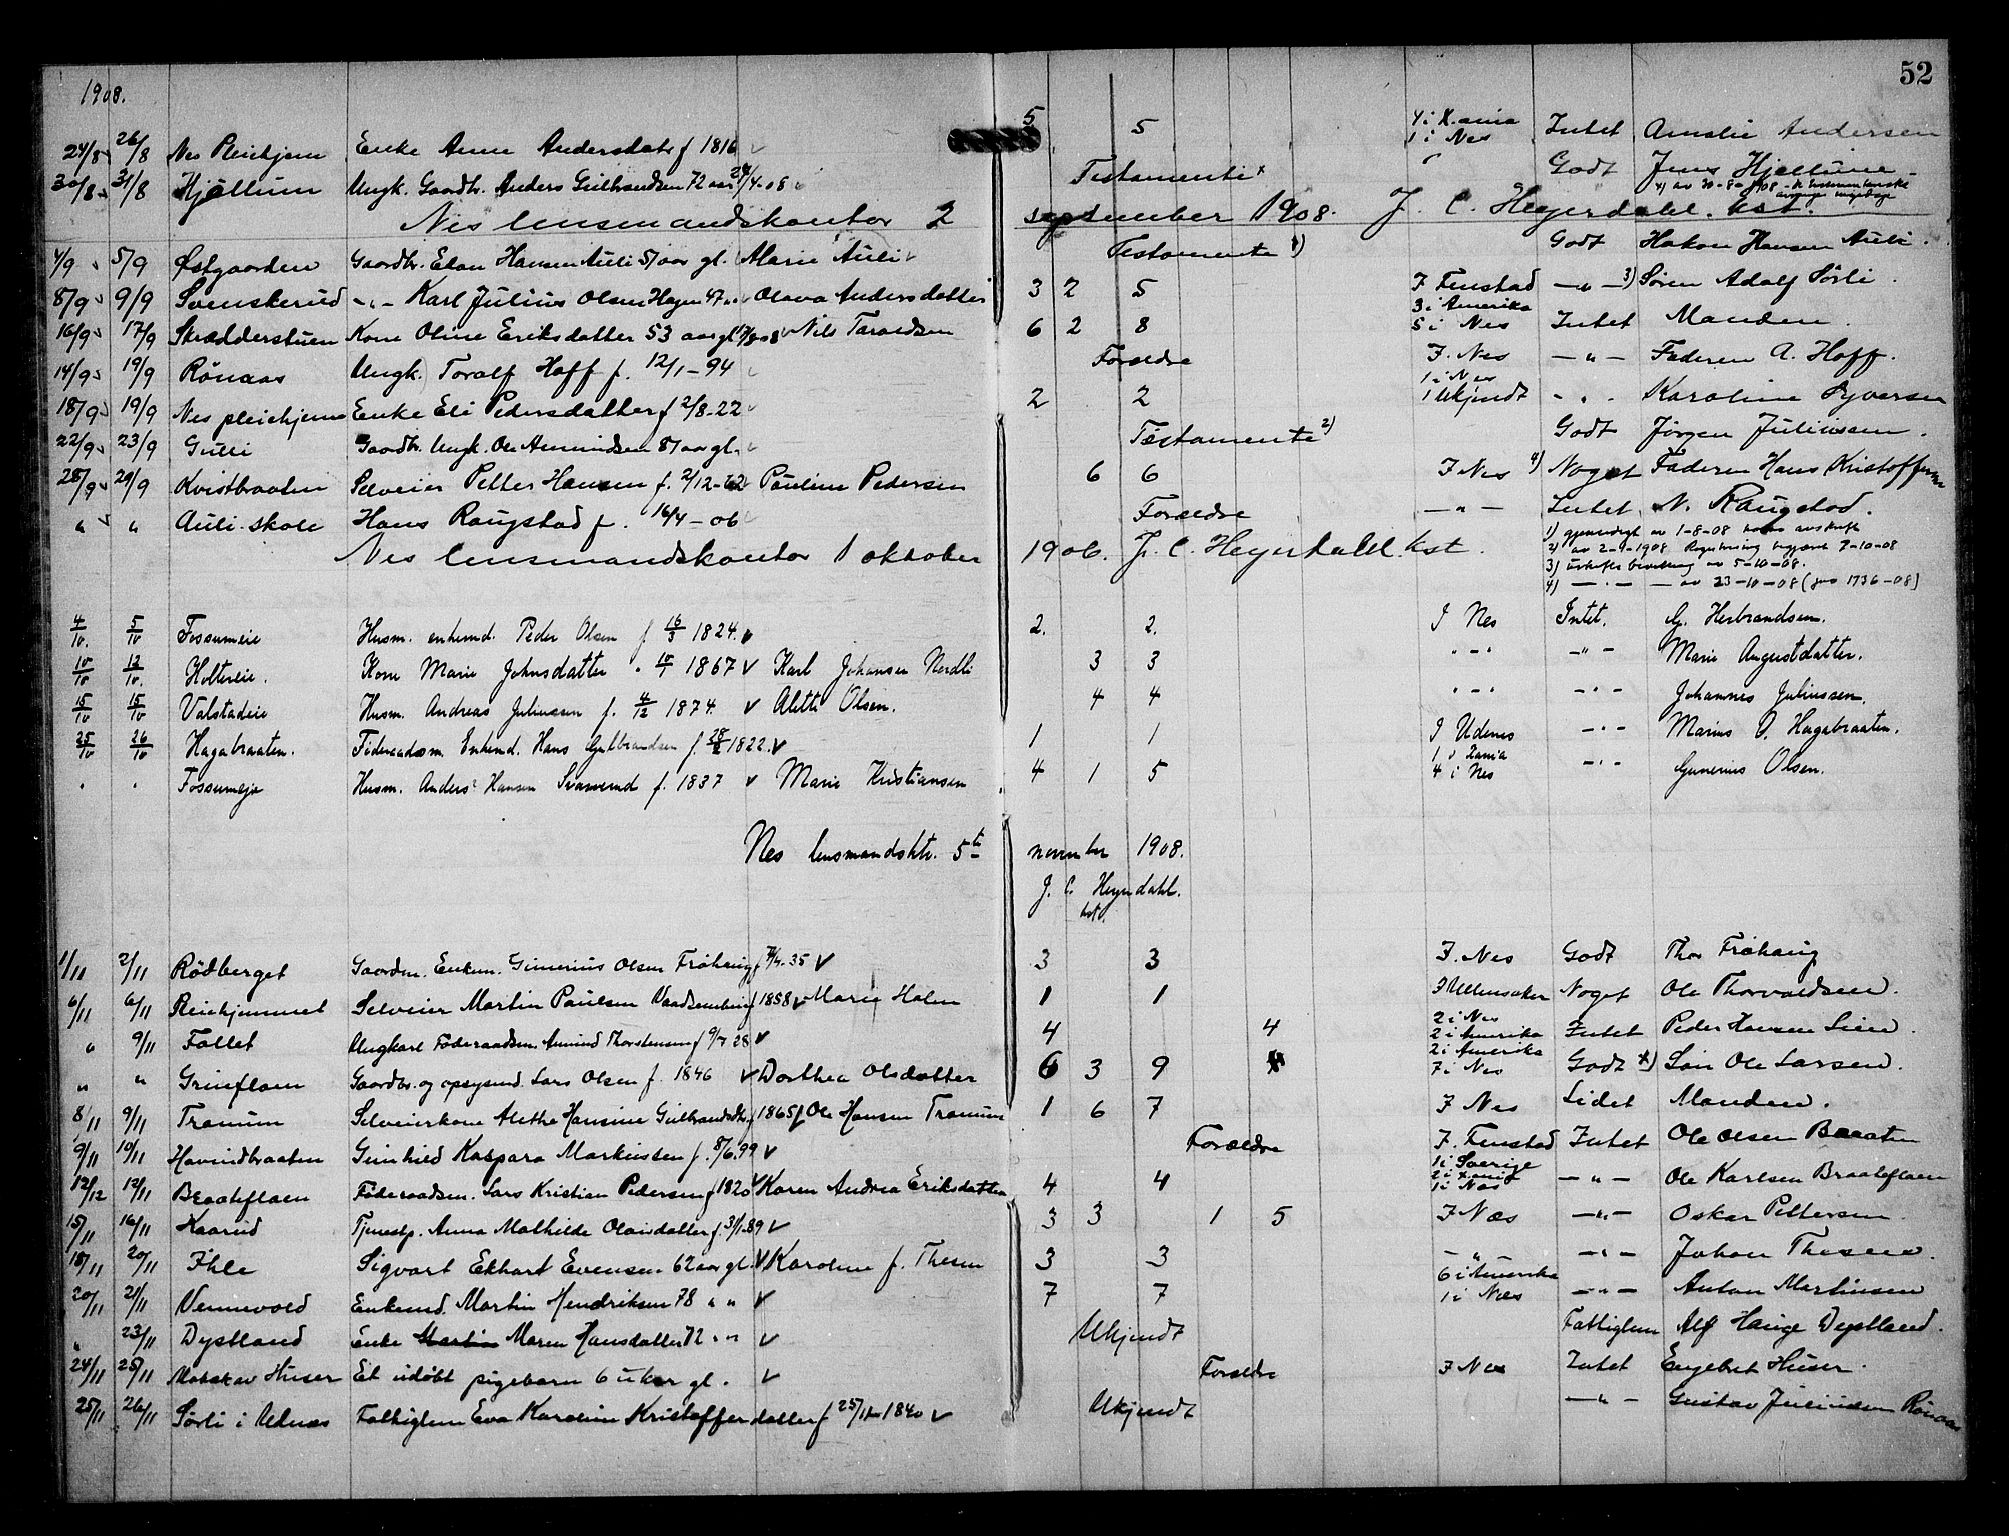 52
1908.
24/8 26/8 Nes Pleiehjem Enke Anne Andersdatr f 1816 5 5 4 i X.ania 1 i Nes Intet Amalie Andersen
30/8 31/8 Hjellum Ungk. Gaardbr. Anders Gulbrandsen 72 aar 24/4-08 Testamente x " Godt Jens Hjellum
x) av 30-8-1908
Nes lensmandskontor 2 september 1908. J. C. Heyerdahl. kst.
4/9 5/9 Østgaarden Gaardbr. Elan Hansen Auli 51 aar gl. Marie Auli Testamente 1) Godt Hakon Hansen Auli.
8/9 9/9 Svenskerud -"- Karl Julius Olsen Hagen 47 " " Olava Andersdatter 3 2 5 I Fenstad -"- 3) Søren Adolf Sørli.
16/9 17/9 Skrædderstuen Kone Oline Eriksdatter 53 aar gl Nils Taraldsen 6 2 8 3 i Amerika 5 i Nes Intet Manden.
14/9 19/9 Rönaas Ungk. Toralf Hoff f. 12/1-94 Forældre I. Nes -"- Faderen A. Hoff.
18/9 19/9 Nes pleiehjem Enke Eli Pedersdatter f 2/8-22 2 2 1 i Nes 1 Ukjendt -"- Karoline Syversen
22/9 23/9 Gulli Gaardbr. Ungk. Ole Amundsen 81 aar gl. Testamente 2) Godt Jørgen Juliussen.
28/9 29/9 Kvistbraaten Selveier Petter Hansen f. 2/12-62 Pauline Pedersen 6 6 I Nes 4) Noget Faderen Hans Kristoffersen
" " Auli skole Hans Raugstad f. 16/4-06 Forældre -"- Intet N. Raugstad.
Nes lensmandskontor 1 oktober 1908. J. C. Heyerdahl. kst.
1) gjensidigt av 1-8-08 avskrift
2) av 2-9-1908 Registrering begjæret 7-10-08
3) Uskiftebevilling av 5-10-08.
4) -"- - av 23-10-08 (jno 1736-08)
4/10. 5/10 Fossumeie Husm. enkemd. Peder Olsen f 16/3 1824. 2. 2. I Nes Intet. G. Herbrandsen.
10/10 12/10. Holtereie. Kone Marie Johnsdatter " 1867 Karl Johansen Nordli 3 3 " - " -"- Marie Augustdatter.
15/10 15/10 Valstadeie Husm. Andreas Juliussen f. 4/12 1874. Alette Olsen. 4 4 " - " -"- Johannes Juliussen.
25/10 26/10 Hagabraaten. Føderaadsm. Enkemd. Hans Gulbrandsen f. 28/2 1822. 1 1 I Udenes -"- Marius O. Hagabraaten.
" " Fossumeje Husm. Anders Hansen Svarverud f. 1837 Marie Kristiansen 4 1 5 1 i Xania 4 i Nes -"- Gunerius Olsen.
Nes lensmandsktr. 5te november 1908.
J. C. Heyerdahl.
kst.
1/11 2/11 Rödberget Gaardm. Enkem. Gunerius Olsen Fröhaug f 4-35 3 3 I. Nes Godt Thor Fröhaug
6/11 6/11 Pleiehjemmet Selveier Martin Paulsen f 1858 Marie Holm 1 1 I Ullensaker Noget Ole Thorvaldsen.
" 9/11 Fallet Ungkarl Føderaadsm. Amund Thorstensen f 9/7 28 4 4 2 i Nes 2 i Amerika Intet Peder Hansen Lien.
" " Grinflaen Gaardbr. og opsynsmd. Lars Olsen f. 1846 Dorthea Olsdatter 6 3 9 2 i Amerika 7 i Nes Godt x) Søn Ole Larsen.
8/11 9/11 Tranum Selveierkone Alethe Hansine Gulbrandsdtr f 1865 Ole Hansen Tranum 1 6 7 I Nes Lidet Manden.
9/11 10/11 Havindbraaten Gunhild Kaspara Markussen f. 8/6.99 Forældre I. Fenstad Intet Ole Olsen Braaten
12/12 12/11 Braateflaen Føderaadsm. Lars Kristian Pedersen f 1820 Karen Andrea Eriksdatter 4 4 1 i Sverige 2 i Xania 1 i Nes -"- Ole Karlsen Braateflaen
15/11 16/11 Kaarud Tjenestp. Anna Mathilde Olausdatter f. 31/1.89 3 3 1 5 I Næs -"- Oskar Pettersen.
18/11 20/11 Ihle Sigvart Ekhart Evensen 62 aar gl. Karoline f. Thesen 3 3 - " -"- Johan Thesen.
20/11 21/11 Vennevold Enkemd. Martin Hendriksen 78 " " 7 7 6 i Amerika 1 i Næs -"- Anton Martinsen
" 23/11 Dystland Enke Maren Hansdatter 72 " " Ukjendt Fattiglem Alf Hauge Dystland.
24/11 25/11 Huser Et udøbt pigebarn 6 uker gl. Forældre I Nes Intet Engebret Huser.
25/11 26/11 Sørli i Udnæs Fattiglem Eva Karoline Kristofferdatter f 25/11-1840 Ukjendt -"- Gustav Juliussen Rönaas